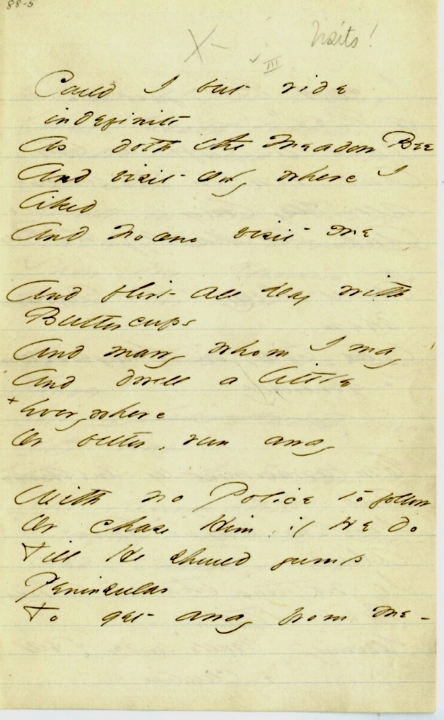 88-5
X-
Visits!
III
Could I but ride
indefinite
As doth the Meadow Bee
And visit only where I
liked
And no one visit me
And flirt all Day with
Buttercups
And marry whom I may
And dwell a little
+ Everywhere
Or better, run away
With no Police to follow
Or chase Him if He do
Till He should jump
Peninsulas
To get away from me -